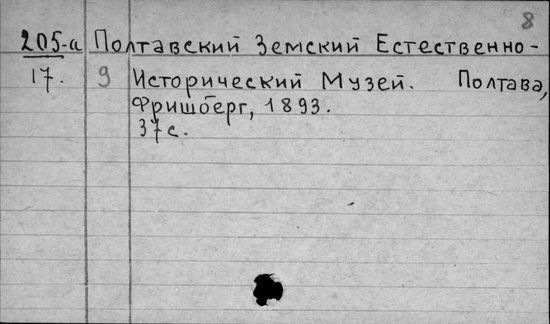 8
205-а Полтавский Земский Естественно-
17. 9 Исторический Музей. Полтава,
Фришберг, 1893.
37 с.